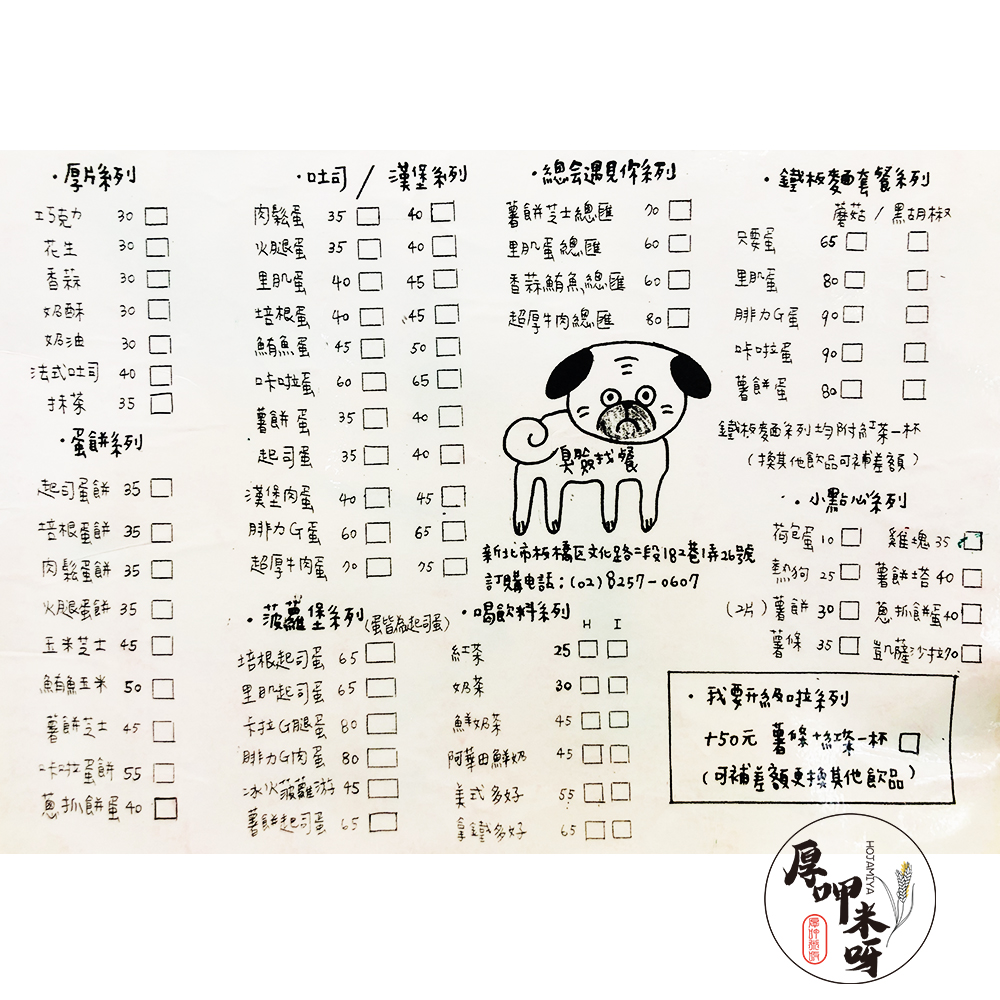 ・厚片系列
巧克力 30 □
花生 30 □
香蒜 30 □
奶酥 30 □
奶油 30 □
法式吐司 40 □
抹茶 35 □
・蛋餅系列
起司蛋餅 35 □
培根蛋餅 35 □
肉鬆蛋餅 35 □
火腿蛋餅 35 □
玉米芝士 45 □
鮪魚玉米 50 □
薯餅芝士 45 □
咔啦蛋餅 55 □
蔥抓餅蛋 40 □
・吐司 / 漢堡系列
肉鬆蛋 35 □ 40 □
火腿蛋 35 □ 40 □
里肌蛋 40 □ 45 □
培根蛋 40 □ 45 □
鮪魚蛋 45 □ 50 □
咔啦蛋 60 □ 65 □
薯餅蛋 35 □ 40 □
起司蛋 35 □ 40 □
漢堡肉蛋 40 □ 45 □
腓力G蛋 60 □ 65 □
超厚牛肉蛋 70 □ 75 □
・菠蘿堡系列(蛋皆為起司蛋)
培根起司蛋 65 □
里肌起司蛋 65 □
卡拉G腿蛋 80 □
腓力G肉蛋 80 □
冰火菠蘿游 45 □
薯餅起司蛋 65 □
・總会遇見你系列
薯餅芝士總匯 70 □
里肌蛋總匯 60 □
香蒜鮪魚總匯 60 □
超厚牛肉總匯 80 □
臭臉找餐
新北市板橋区文化路二段182巷1弄26號
訂購電話:(02)8257-0607
・喝飲料系列
H I
紅茶 25 □ □
奶茶 30 □ □
鮮奶茶 45 □ □
阿華田鮮奶 45 □ □
美式多好 55 □ □
拿鐵多好 65 □ □
・鐵板麵套餐系列
蘑菇 / 黑胡椒
只要蛋 65 □ □
里肌蛋 80 □ □
腓力G蛋 90 □ □
咔啦蛋 90 □ □
薯餅蛋 80 □ □
鐵板麵系列均附紅茶一杯
(換其他飲品可補差額)
・小點心系列
荷包蛋 10 □ 雞塊 35 □
熱狗 25 □ 薯餅塔 40 □
(2片)薯餅 30 □ 蔥抓餅蛋 40 □
薯條 35 □ 凱薩沙拉 70 □
・我要升級啦系列
+50元 薯條+紅茶一杯 □
(可補差額更換其他飲品)
厚呷米呀
HOJAMIYA